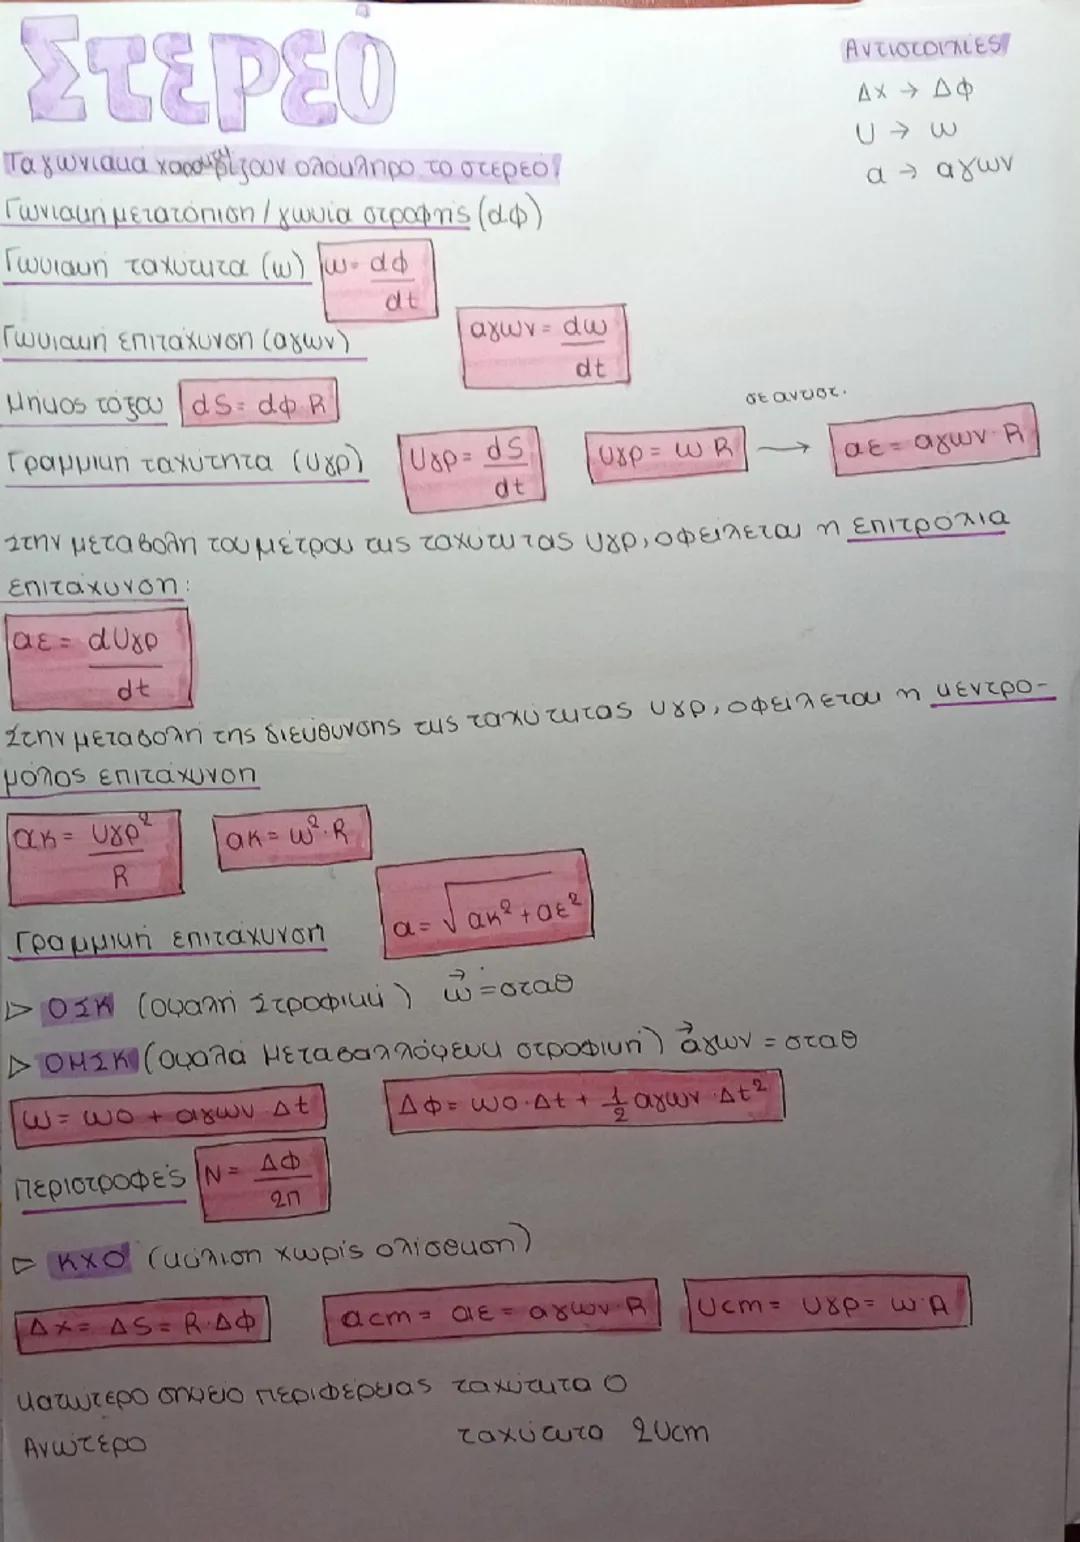 Στερεό
Αντιστοιχίες
Δx → Δφ
υ → ω
α → αγων
Τα γωνιακά χαρακτηρίζουν ολόκληρο το στερεό!
Γωνιακή μετατόπιση / γωνία στροφής (dφ)
Γωνιακή ταχύτητα (ω) ω = dφ/dt
Γωνιακή επιτάχυνση (αγων) αγων = dω/dt
Μήκος τόξου dS = dφ·R
σε αντιστ.
Γραμμική ταχύτητα (υγρ) υγρ = dS/dt υγρ = ωR → αε = αγων·R
Στην μεταβολή του μέτρου της ταχύτητας υγρ, οφείλεται η επιτρόχια
επιτάχυνση:
αε = dυγρ/dt
Στην μεταβολή της διεύθυνσης της ταχύτητας υγρ, οφείλεται η κεντρο-
μόλος επιτάχυνση
ακ = υγρ²/R ακ = ω²·R
Γραμμική επιτάχυνση α = √ακ² + αε²
▷ ΟΣΚ (ομαλή Στροφική) ω⃗ = σταθ
▷ ΟΜΣΚ (ομαλά Μεταβαλλόμενη στροφική) α⃗γων = σταθ
ω = ω0 + αγων·Δt Δφ = ω0·Δt + 1/2 αγων·Δt²
Περιστροφές N = Δφ/2π
▷ ΚΧΟ (κύλιση χωρίς ολίσθηση)
Δx = ΔS = R·Δφ αcm = αε = αγων·R υcm = υγρ = ω·R
κατώτερο σημείο περιφέρειας ταχύτητα 0
Ανώτερο ταχύτητα 2υcm